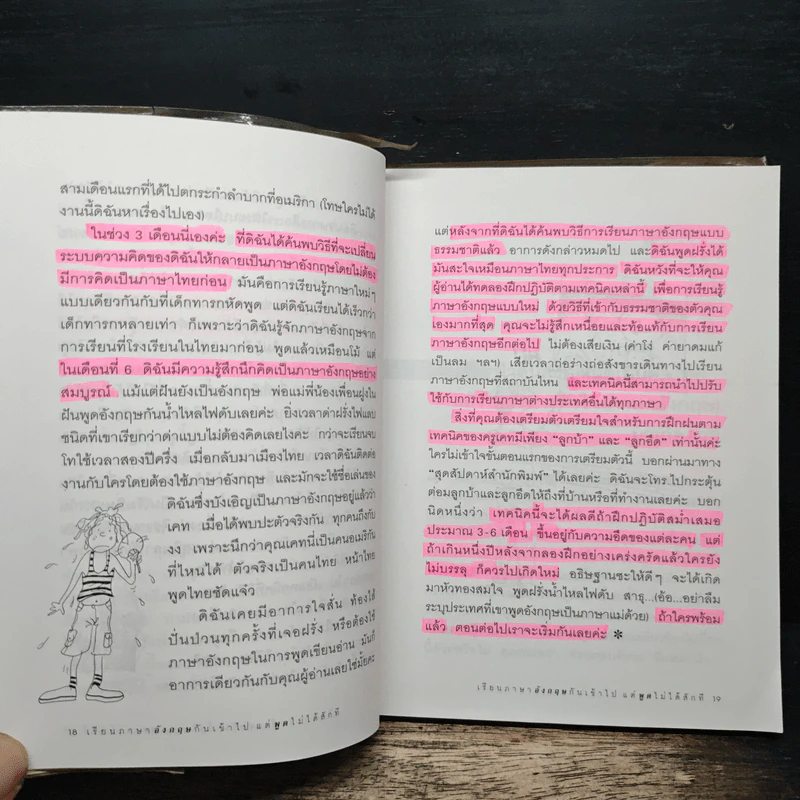 สามเดือนแรกที่ได้ไปตกระกำลำบากที่อเมริกา (โทษใครไม่ได้
งานนี้ดิฉันหาเรื่องไปเอง)
ในช่วง 3 เดือนนี่เองค่ะ ที่ดิฉันได้ค้นพบวิธีที่จะเปลี่ยน
ระบบความคิดของดิฉันให้กลายเป็นภาษาอังกฤษโดยไม่ต้อง
มีการคิดเป็นภาษาไทยก่อน มันคือการเรียนรู้ภาษาใหม่ๆ
แบบเดียวกันกับที่เด็กทารกหัดพูด แต่ดิฉันเรียนได้เร็วกว่า
เด็กทารกหลายเท่า ก็เพราะว่าดิฉันรู้จักภาษาอังกฤษจาก
การเรียนที่โรงเรียนในไทยมาก่อน พูดแล้วเหมือนโม้ แต่
ในเดือนที่ 6 ดิฉันมีความรู้สึกนึกคิดเป็นภาษาอังกฤษอย่าง
สมบูรณ์ แม้แต่ฝันยังเป็นอังกฤษ พ่อแม่พี่น้องเพื่อนฝูงใน
ฝันพูดอังกฤษกันน้ำไหลไฟดับเลยค่ะ ยิ่งเวลาด่าฝรั่งไฟแลบ
ชนิดที่เขาเรียกว่าด่าแบบไม่ต้องคิดเลยไงคะ กว่าจะเรียนจบ
โทใช้เวลาสองปีครึ่ง เมื่อกลับมาเมืองไทย เวลาดิฉันติดต่อ
งานกับใครโดยต้องใช้ภาษาอังกฤษ และมักจะใช้ชื่อเล่นของ
ดิฉันซึ่งบังเอิญเป็นภาษาอังกฤษอยู่แล้วว่า
เคท เมื่อได้พบปะตัวจริงกัน ทุกคนถึงกับ
งง เพราะนึกว่าคุณเคทนี่เป็นคนอเมริกัน
ที่ไหนได้ ตัวจริงเป็นคนไทย หน้าไทย
พูดไทยชัดแจ๋ว
ดิฉันเคยมีอาการใจสั่น ท้องไส้
ปั่นป่วนทุกครั้งที่เจอฝรั่ง หรือต้องใช้
ภาษาอังกฤษในการพูดเขียนอ่าน มันก็
อาการเดียวกันกับคุณผู้อ่านเลยใช่มั้ยคะ
18 เรียนภาษาอังกฤษกันเข้าไป แต่พูดไม่ได้สักที
แต่หลังจากที่ดิฉันได้ค้นพบวิธีการเรียนภาษาอังกฤษแบบ
ธรรมชาติแล้ว อาการดังกล่าวหมดไป และดิฉันพูดฝรั่งได้
มันสะใจเหมือนภาษาไทยทุกประการ ดิฉันหวังที่จะให้คุณ
ผู้อ่านได้ทดลองฝึกปฏิบัติตามเทคนิคเหล่านี้ เพื่อการเรียนรู้
ภาษาอังกฤษแบบใหม่ ด้วยวิธีที่เข้ากับธรรมชาติของตัวคุณ
เองมากที่สุด คุณจะไม่รู้สึกเหนื่อยและท้อแท้กับการเรียน
ภาษาอังกฤษอีกต่อไป ไม่ต้องเสียเงิน (ค่าโง่ ค่ายาดมแก้
เป็นลม ฯลฯ) เสียเวลาถ่อร่างถ่อสังขารเดินทางไปเรียน
ภาษาอังกฤษที่สถาบันไหน และเทคนิคนี้สามารถนำไปปรับ
ใช้กับการเรียนภาษาต่างประเทศอื่นได้ทุกภาษา
สิ่งที่คุณต้องเตรียมตัวเตรียมใจสำหรับการฝึกฝนตาม
เทคนิคของครูเคทมีเพียง “ลูกบ้า” และ “ลูกอึด” เท่านั้นค่ะ
ใครไม่เข้าใจขั้นตอนแรกของการเตรียมตัวนี้ บอกผ่านมาทาง
“สุดสัปดาห์สำนักพิมพ์” ได้เลยค่ะ ดิฉันจะโทร.ไปกระตุ้น
ต่อมลูกบ้าและลูกอึดให้ถึงที่บ้านหรือที่ทำงานเลยค่ะ บอก
นิดหนึ่งว่า เทคนิคนี้จะได้ผลดีถ้าฝึกปฏิบัติสม่ำเสมอ
ประมาณ 3-6 เดือน ขึ้นอยู่กับความอึดของแต่ละคน แต่
ถ้าเกินหนึ่งปีหลังจากลองฝึกอย่างเคร่งครัดแล้วใครยัง
ไม่บรรลุ ก็ควรไปเกิดใหม่ อธิษฐานซะให้ดีๆ จะได้เกิด
มาหัวทองสมใจ พูดฝรั่งน้ำไหลไฟดับ สาธุ...(อ้อ...อย่าลืม
ระบุประเทศที่เขาพูดอังกฤษเป็นภาษาแม่ด้วย) ถ้าใครพร้อม
แล้ว ตอนต่อไปเราจะเริ่มกันเลยค่ะ *
เรียนภาษาอังกฤษกันเข้าไป แต่พูดไม่ได้สักที 19